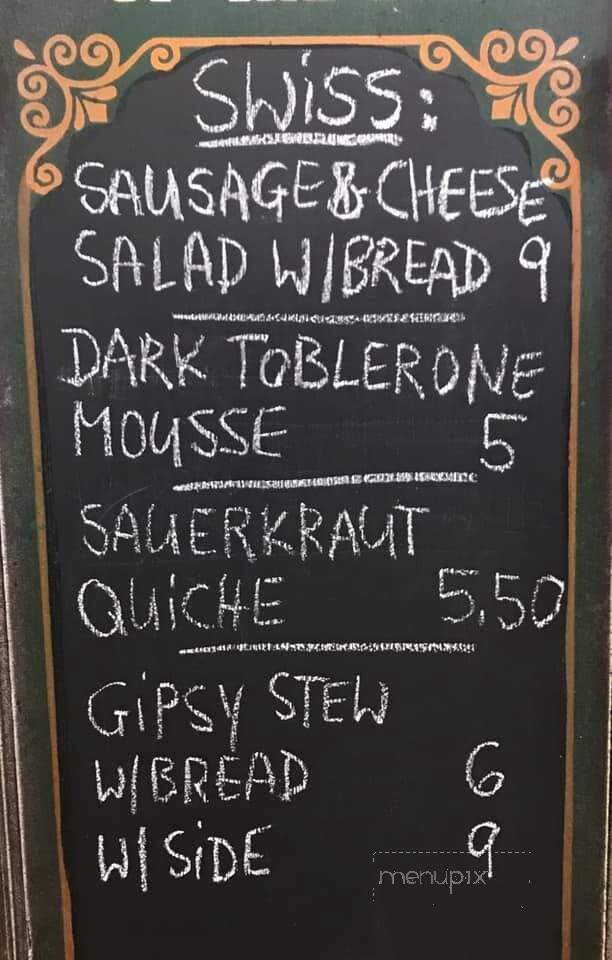 SWiSS:
SAUSAGE & CHEESE
SALAD W/BREAD 9
DARK TOBLERONE
MOUSSE 5
SAUERKRAUT
QUiCHE 5.50
GiPSY STEW
W/BREAD 6
W/ SiDE 9
menupix